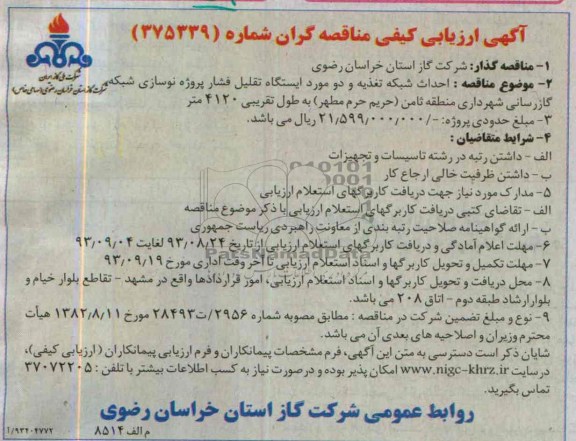 آگهی ارزیابی کیفی مناقصه گران شماره (۳۷۵۳۳۹)
شرکت ملی گاز ایران
شرکت گاز استان خراسان رضوی (سهامی خاص)
۱- مناقصه گذار: شرکت گاز استان خراسان رضوی
۲- موضوع مناقصه : احداث شبکه تغذیه و دو مورد ایستگاه تقلیل فشار پروژه نوسازی شبکه
گازرسانی شهرداری منطقه ثامن (حریم حرم مطهر) به طول تقریبی ۴۱۲۰ متر
۳- مبلغ حدودی پروژه: /-۲۱,۵۹۹,۰۰۰,۰۰۰ ریال می باشد.
۴- شرایط متقاضیان :
الف - داشتن رتبه در رشته تاسیسات و تجهیزات
ب - داشتن ظرفیت خالی ارجاع کار
۵- مدارک مورد نیاز جهت دریافت کاربرگهای استعلام ارزیابی
الف - تقاضای کتبی دریافت کاربرگهای استعلام ارزیابی با ذکر موضوع مناقصه
ب - ارائه گواهینامه صلاحیت رتبه بندی از معاونت راهبردی ریاست جمهوری
۶- مهلت اعلام آمادگی و دریافت کاربرگهای استعلام ارزیابی از تاریخ ۹۳/۰۸/۲۴ لغایت ۹۳/۰۹/۰۴
۷- مهلت تکمیل و تحویل کاربرگها و اسناد استعلام ارزیابی تا آخر وقت اداری مورخ ۹۳/۰۹/۱۹
۸- محل دریافت و تحویل کاربرگها و اسناد استعلام ارزیابی، امور قراردادها واقع در مشهد - تقاطع بلوار خیام و
بلوار ارشاد طبقه دوم - اتاق ۲۰۸ می باشد.
۹- نوع و مبلغ تضمین شرکت در مناقصه : مطابق مصوبه شماره ۲۹۵۶/ت۲۸۴۹۳ مورخ ۱۳۸۲/۸/۱۱ هیأت
محترم وزیران و اصلاحیه های بعدی آن می باشد.
شایان ذکر است دسترسی به متن این آگهی، فرم مشخصات پیمانکاران و فرم ارزیابی پیمانکاران (ارزیابی کیفی)،
در سایت www.nigc-khrz.ir امکان پذیر بوده و در صورت نیاز به کسب اطلاعات بیشتر با تلفن : ۳۷۰۷۲۲۰۵
تماس بگیرید.
روابط عمومی شرکت گاز استان خراسان رضوی
م الف ۸۵۱۴
۱/۹۳۲۰۴۷۷۲
ParsNamadData